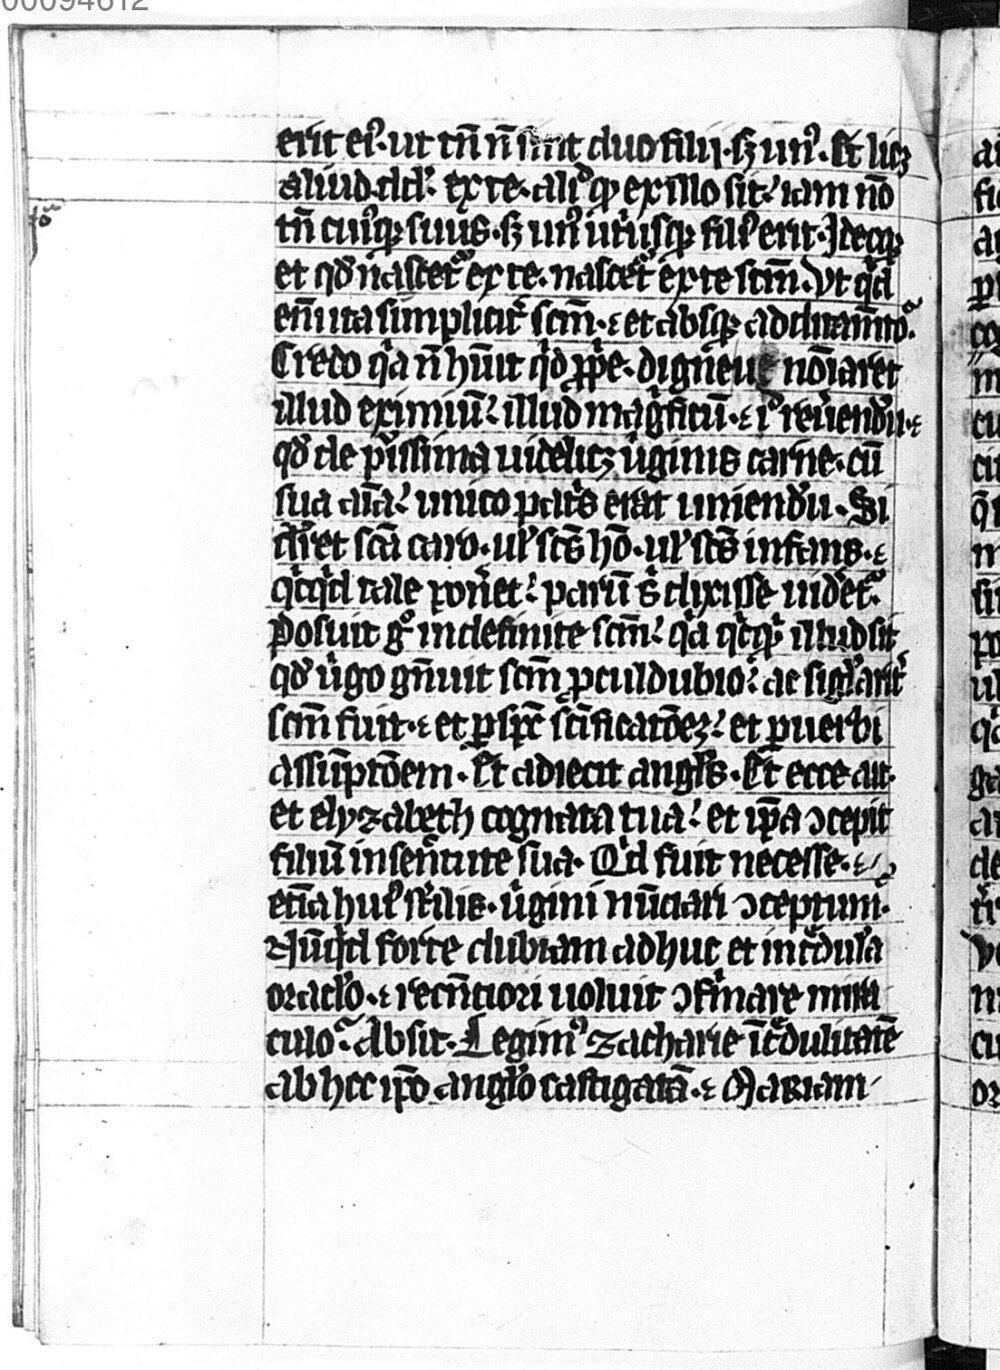 00094612
erit ei᷒. ut tn̄ n̄ sint duo filij. sꝫ un᷒. Et licꝫ
aliud. ex te. aliud ꝙ ex illo sit. iam nō
tn̄ cui᷒qꝫ suus. sꝫ un᷒ utriusqꝫ fili᷒ erit. Ideoqꝫ
et qd̄ nascet᷑ ex te. nascet᷑ ex te scm̄. Ut qid
eni ita simplicit᷑ scm̄. et absqꝫ additam̄to.
Credo qa n̄ hūit qd ꝓpe. digneue noīaret
illud eximiū. illud magficū. ⁊ id reuendū. ⁊
qd̄ de pissima uidelicꝫ uginis carne. cū
sua aīa. unico patis erat uniendū. Si
diret scā caro. ul᷒ scs̄ hō. ul᷒ scs̄ infans. ⁊
qicqid tale ponet. parū s dixisse uidet᷑.
Posuit gº indefinite scm̄. qa qicqꝫ illud sit
qd̄ ugo gn̄uit scm̄ ꝓculdubio. ac siglarit᷑
scm̄ fuit. ⁊ et ꝑ spc̄ scīficatōeꝫ. et ꝑ uerbi
assūptōem. Et adiecit angls. Et ecce ait.
et elyzabeth cognata tua. et ip̄a ꝯcepit
filiū in senctute sua. Qid fuit necesse.
etiā hui᷒ stilis. ugini nūciari ꝯceptum.
Nūqid forte dubiam adhuc et incdula
oraclo. recn̄ciori uoluit ꝯfirmare mira
culo. Absit. Legim᷒ zacharie īcdulitatē
ab hoc ip̄o anglo castigatā. ⁊ Mariam